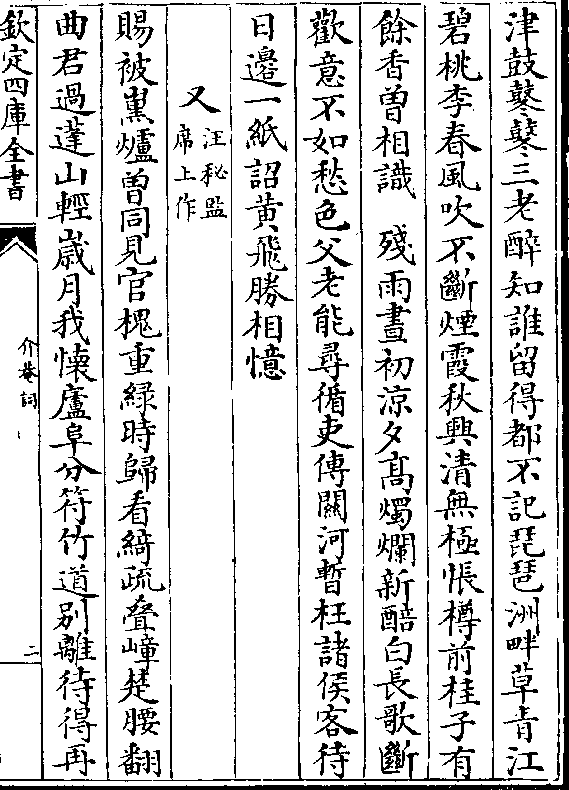 津鼓鼕鼕三老醉知誰留得都不記琵琶洲畔草青江
碧桃李春風吹不斷煙霞秋興清無極悵樽前桂子有
餘香曽相識　殘雨晝初涼夕高燭爛新醅白長歌斷
歡意不如愁色父老能尋循吏傳關河暫枉諸侯客待
日邊一紙詔黄飛勝相憶
又汪秘監
席上作
賜被熏爐曽同見官槐重緑時歸看綺疏叠嶂楚腰翻
曲君過蓬山輕歲月我懐廬阜分符竹道别離待得再
欽定四庫全書
介菴詞
二